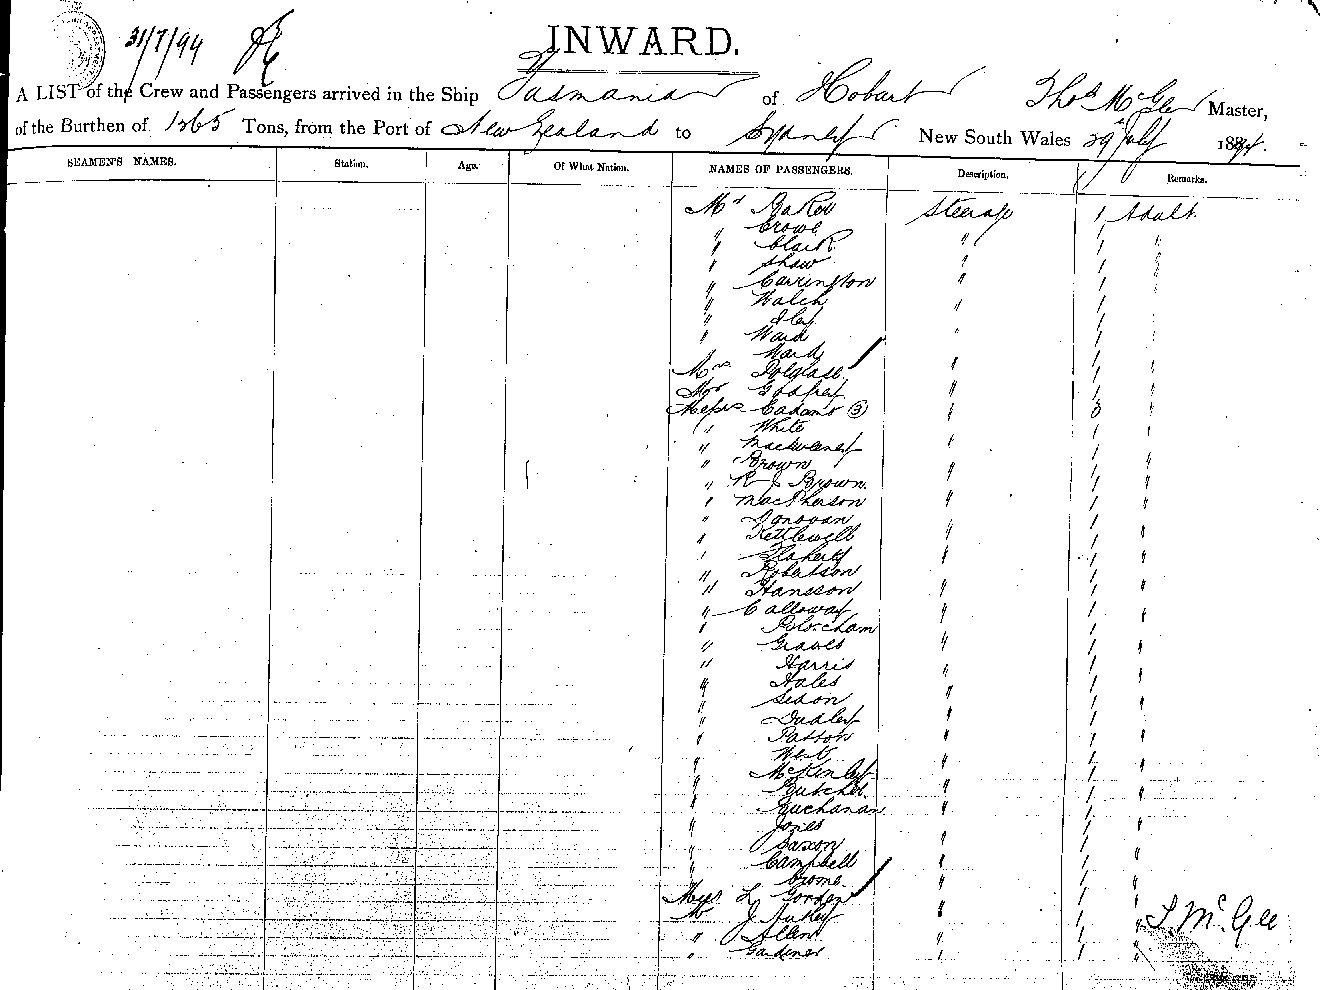 31/7/94
INWARD.
A LIST of the Crew and Passengers arrived in the Ship Tasmania of Hobart Thos McGee Master,
of the Burthen of 1265 Tons, from the Port of New Zealand to Sydney New South Wales 29 July 1894.
SEAMEN'S NAMES. Station. Age. Of What Nation. NAMES OF PASSENGERS. Description. Remarks.
Mr Baker Steerage 1 Adult
" Crowe " 1 "
" Clark " 1 "
" Shaw " 1 "
" Carrington " 1 "
" Walch " 1 "
" 1
" Ward " 1
Ward 1
Mrs Polglase " 1 "
Miss Godfrey " 1 "
Messrs Cadams (3) " 3 "
" White 1
" Macweeney " 1
" Brown " 1 "
" R J Brown " 1 "
" MacPherson " 1 "
" Donovan 1
" Kettlewell " 1 "
" Flaherty " 1 "
" Robertson 1 "
" Hansson " 1 "
" Calloway " 1 "
" 1
" Graves " 1 "
" Harris " 1 "
" Hales 1 "
" Sexon " 1 "
" Dudley " 1 "
" Patton " 1 "
" West 1
" McKinley " 1 "
" Butcher " 1 "
" Buchanan " 1 "
" Jones 1
" Saxon " 1 "
" Campbell " 1 "
" Crome " 1 "
Miss L Gorden " 1 "
Mr J " 1 " T. McGee
" Allen " 1 "
" Gardiner " 1 "